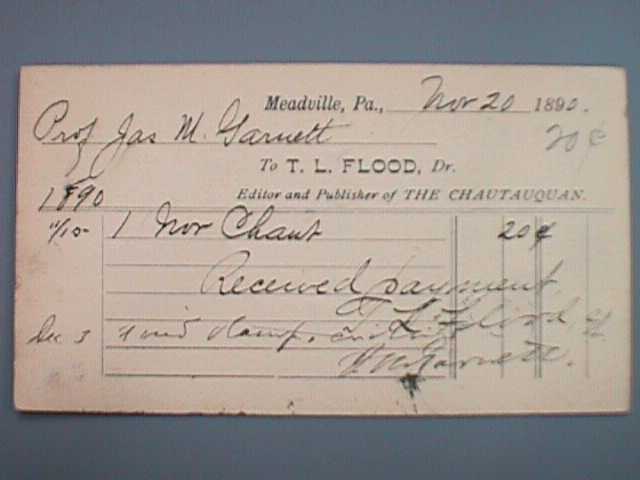 Meadville, Pa., Nov 20 1890.
Prof Jas M. Garnett 20¢
To T. L. FLOOD, Dr.
1890 Editor and Publisher of THE CHAUTAUQUAN.
11/10 1 Nov Chaut 20¢
Received payment
T L Flood
Dec 3
Garnett.